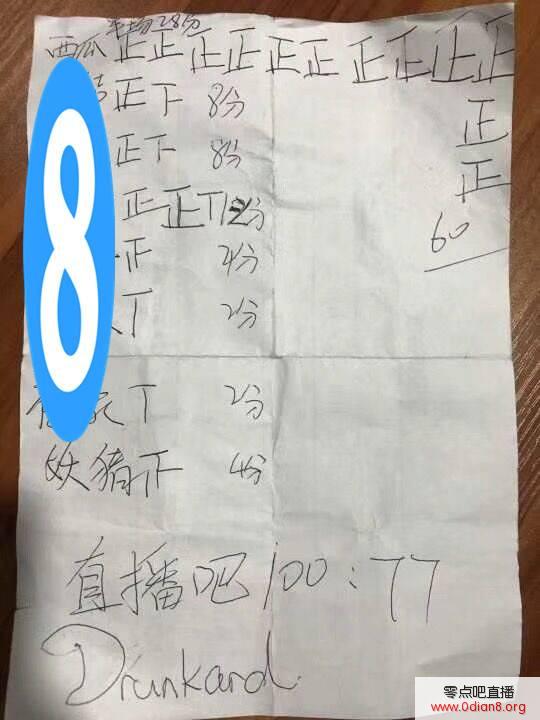 平均28分
西瓜 正正正正正正正正正正
正
正
60
正下 8分
正下 8分
正正T 12分
正 4分
T 2分
T 2分
妖猪正 4分
直播吧100:77
Drunkard.
8
零点吧直播
www.0dian8.org